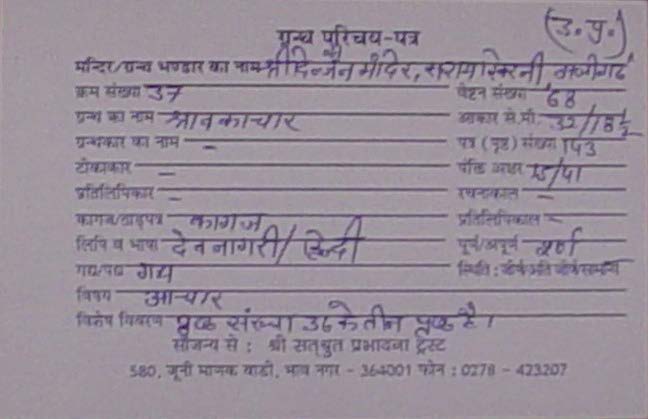 (उ.प्र.)
ग्रन्थ परिचय-पत्र
मन्दिर/ग्रन्थ भण्डार का नाम श्री दि॰ जैन मंदिर,
क्रम संख्या 37 वेष्टन संख्या 68
ग्रन्थ का नाम श्रावकाचार आकार से.मी. 32/18½
ग्रन्थकार का नाम - पत्र (पृष्ठ) संख्या 143
टीकाकार - पंक्ति अक्षर 15/41
प्रतिलिपिकार - रचनाकाल -
कागज/ताड़पत्र कागज प्रतिलिपिकाल -
लिपि व भाषा देवनागरी/हिन्दी पूर्ण/अपूर्ण पूर्ण
गद्य/पद्य गद्य स्थिति : जीर्ण/अति जीर्ण/सामान्य
विषय आचार
विशेष विवरण पृष्ठ संख्या 36 के तीन पृष्ठ है।
सौजन्य से : श्री सत्श्रुत प्रभावना ट्रस्ट
580, जूनी माणक वाडी, भाव नगर - 364001 फोन : 0278 - 423207